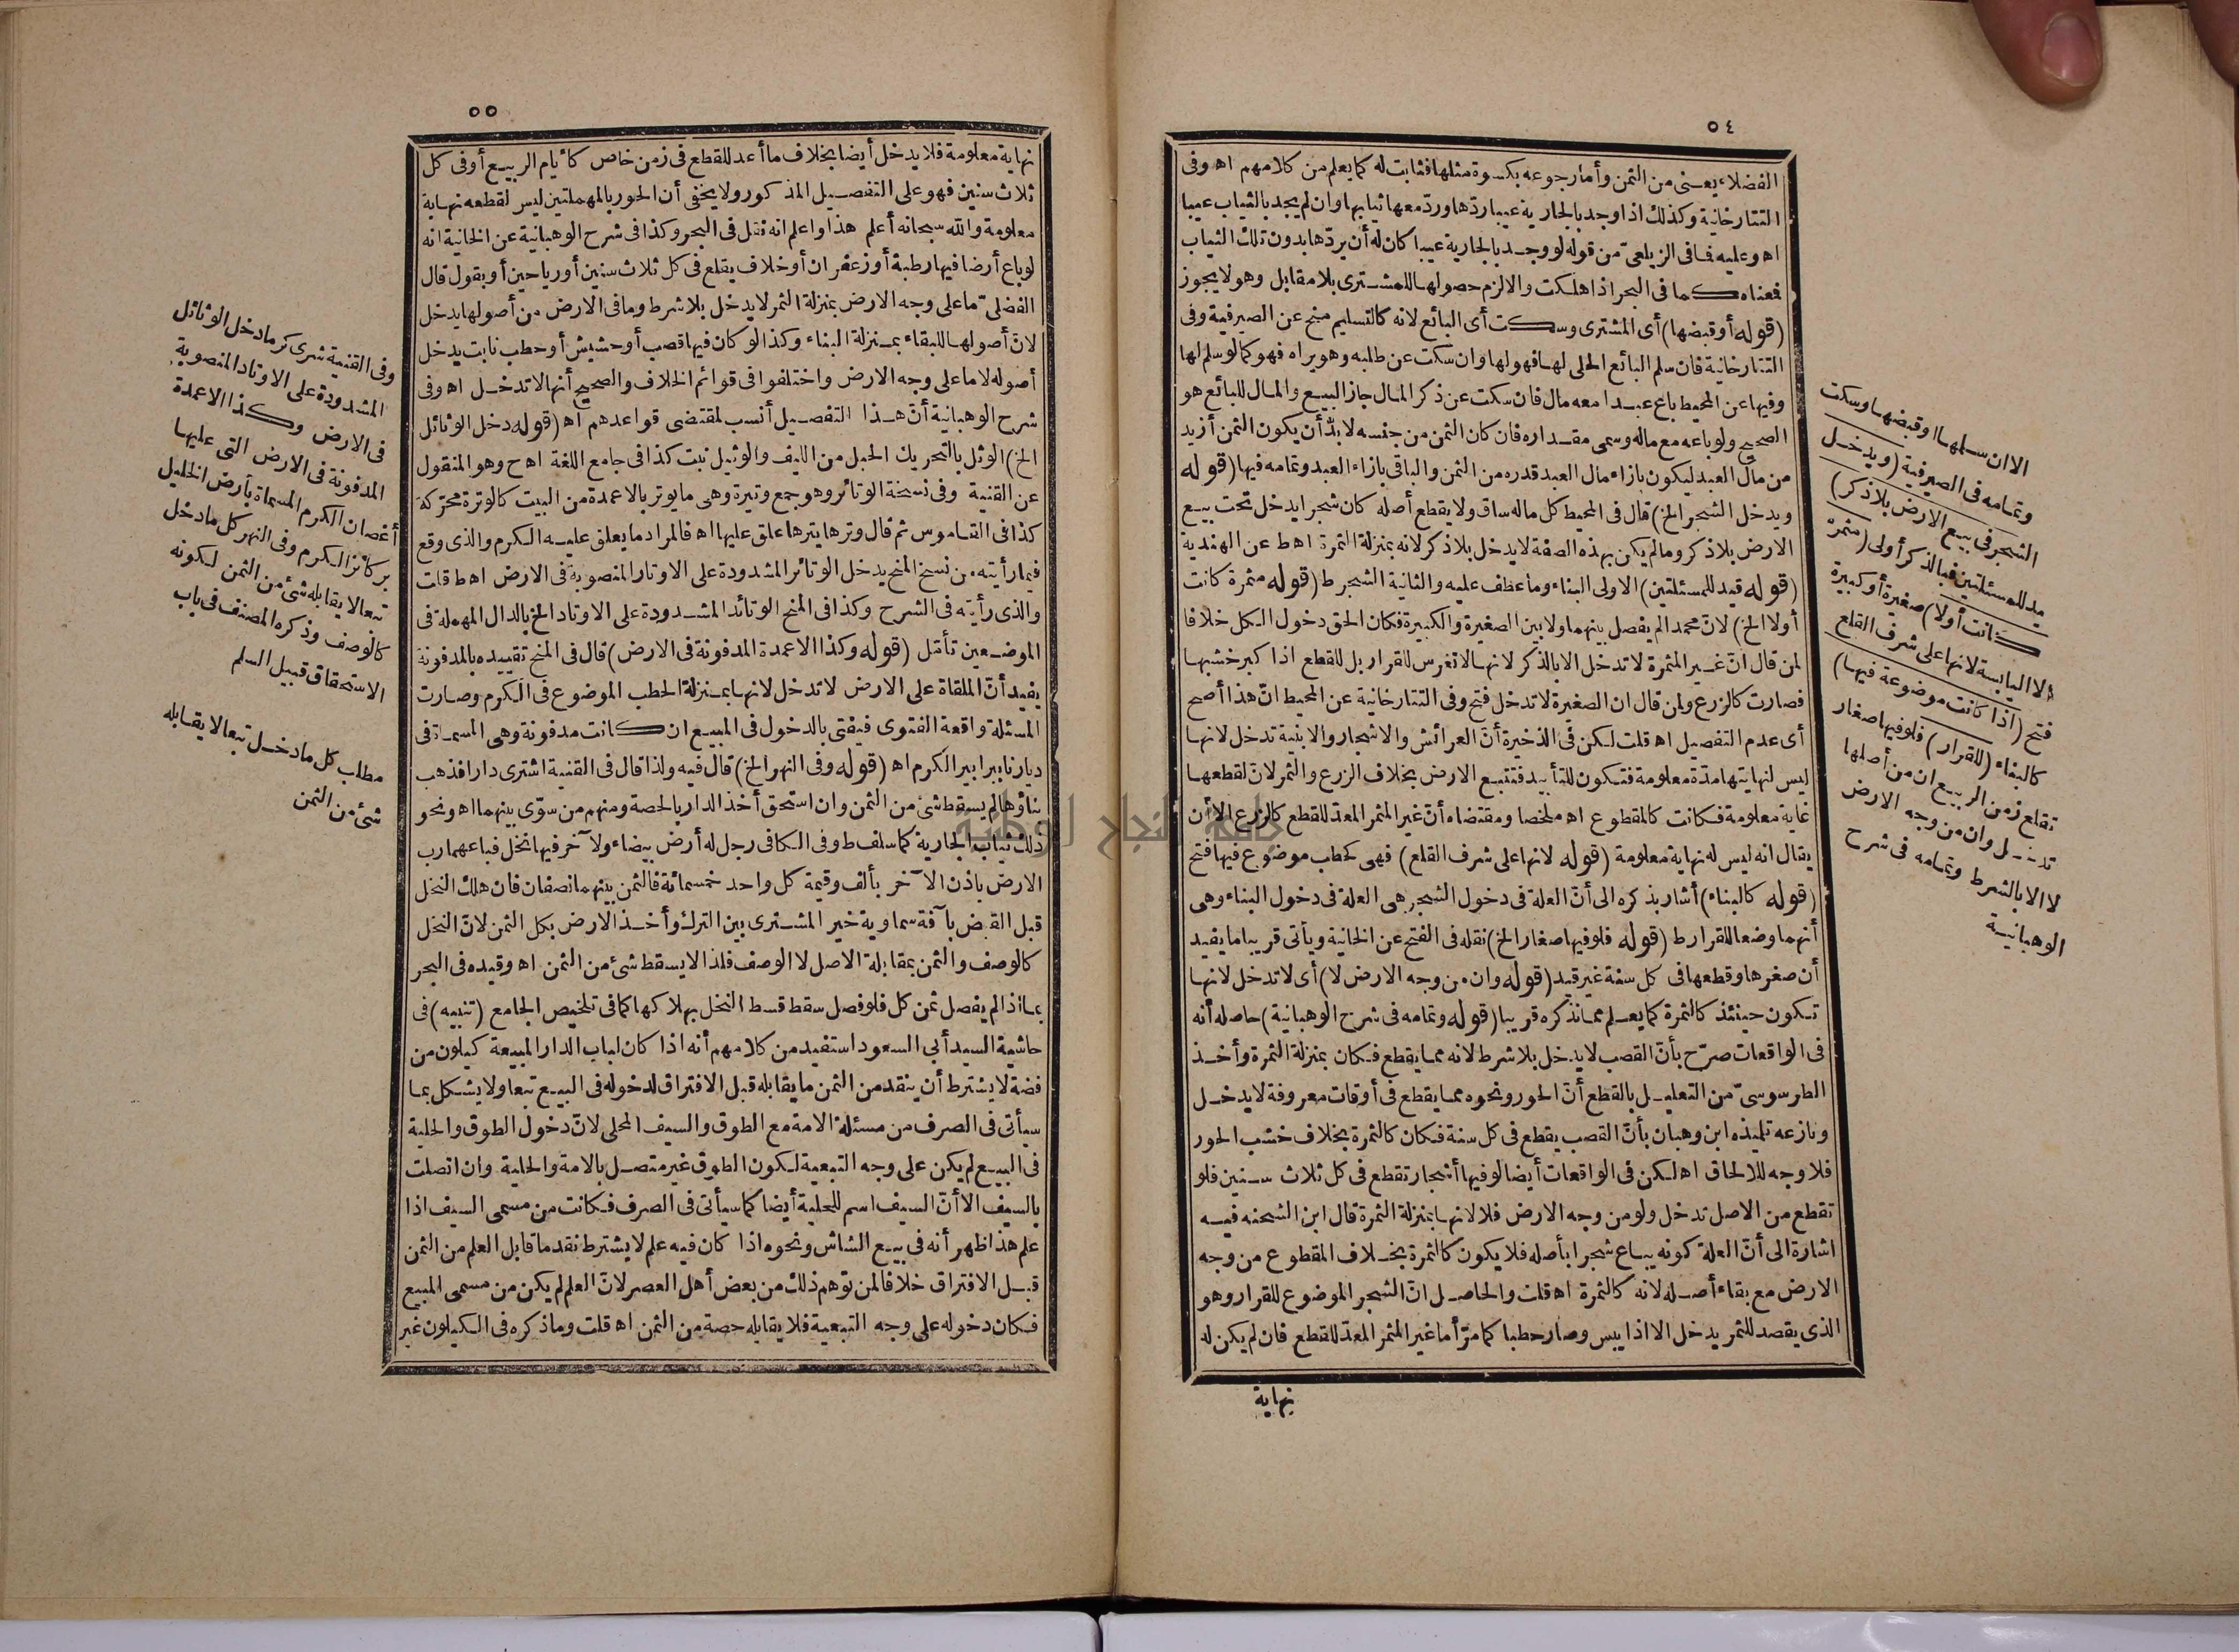 ٥٤
الفضلاء يعنى من الثمن وأما رجوعه بكسوة مثلها فثابت له كما يعلم من كلامهم اه وفى
التتارخانية وكذلك اذا وجد بالجارية عيبا ردّها وردّ معها ثيابها وان لم يجد بالثياب عيبا
اه وعليه فافى الزيلعىّ من قوله لو وجد بالجارية عيبا كان له أن يردّها بدون تلك الثياب
فعناه كما فى البحر اذا هلكت والا لزم حصولها للمشترى بلا مقابل وهو لا يجوز
(قوله أو قبضها) أى المشترى وسكت أى البائع لانه كالتسليم منح عن الصيرفية وفى
التتارخانية فان سلم البائع الحلى لها فهو لها وان سكت عن طلبه وهو يراه فهو كما لو سلم لها
وفيها عن المحيط باع عبدا معه مال فان سكت عن ذكر المال جاز البيع والمال للبائع هو
الصحيح ولو باعه مع ماله وسمى مقداره فان كان الثمن من جنسه لا بدّ أن يكون الثمن أزيد
من مال العبد ليكون بازاء مال العبد قدره من الثمن والباقى بازاء العبد وتمامه فيها (قوله
ويدخل الشجر الخ) قال فى المحيط كل ماله ساق ولا يقطع أصله كان شجرا يدخل تحت بيع
الارض بلا ذكر وما لم يكن بهذه الصفة لا يدخل بلا ذكر لانه بمنزلة الثمرة اه ط عن الهندية
(قوله قيد للمسئلتين) الاولى البناء وما عطف عليه والثانية الشجر ط (قوله مثمرة كانت
أولا الخ) لانّ محمدا لم يفصل بينهما ولا بين الصغيرة والكبيرة فكان الحق دخول الكل خلافا
لمن قال انّ غير المثمرة لا تدخل الا بالذكر لانها لا تغرس للقرار بل للقطع اذا كبر خشبها
فصارت كالزرع ولمن قال ان الصغيرة لا تدخل فتح وفى التتارخانية عن المحيط انّ هذا أصح
أى عدم التفصيل اه قلت لكن فى الذخيرة أنّ العرائش والاشجار والابنية تدخل لانها
ليس لنهايتها مدّة معلومة فتكون للتأبيد فتتبع الارض بخلاف الزرع والثمر لانّ لقطعها
غاية معلومة فكانت كالمقطوع اه ملخصا ومقتضاه أنّ غير المثمر المعدّ للقطع كالزرع الا أن
يقال انه ليس له نهاية معلومة (قوله لانها على شرف القلع) فهى كحطب موضوع فيها فتح
(قوله كالبناء) أشار بذكره الى أنّ العلة فى دخول الشجر هى العلة فى دخول البناء وهى
أنهما وضعا للقرار ط (قوله فلو فيها صغار الخ) نقله فى الفتح عن الخانية ويأتى قريبا ما يفيد
أن صغرها وقطعها فى كل سنة غير قيد (قوله وان من وجه الارض لا) أى لا تدخل لانها
تكون حينئذ كالثمرة كما يعلم مما نذكره قريبا (قوله وتمامه فى شرح الوهبانية) حاصله أنه
فى الواقعات صرّح بأنّ القصب لا يدخل بلا شرط لانه مما يقطع فكان بمنزلة الثمرة وأخذ
الطرسوسىّ من التعليل بالقطع أنّ الحور ونحوه مما يقطع فى أوقات معروفة لا يدخل
ونازعه تلميذه ابن وهبان بأنّ القصب يقطع فى كل سنة فكان كالثمرة بخلاف خشب الحور
فلا وجه للالحاق اه لكن فى الواقعات أيضا لو فيها أشجار تقطع فى كل ثلاث سنين فلو
تقطع من الاصل تدخل ولو من وجه الارض فلا لانها بمنزلة الثمرة قال ابن الشحنه فيه
اشارة الى أنّ العلة كونه يباع شجرا بأصله فلا يكون كالثمرة بخلاف المقطوع من وجه
الارض مع بقاء أصله لانه كالثمرة اه قلت والحاصل انّ الشجر الموضوع للقرار وهو
الذى يقصد للثمر يدخل الا اذا يبس وصار حطبا كما مرّ أما غير المثمر المعدّ للقطع فان لم يكن له
نهاية
الا ان سلمها او قبضها وسكت
وتمامه فى الصيرفية (ويدخل
الشجر فى بيع الارض بلا ذكر)
قيد للمسئلتين فبالذكر أولى (مثمرّة
كانت أولا) صغيرة أو كبيرة
الا اليابسة لانها على شرف القلع
فتح (اذا كانت موضوعة فيها)
كالبناء (للقرار) فلو فيها صغار
تقلع زمن الربيع ان من أصلها
تدخل وان من وجه الارض
لا الا بالشرط وتمامه فى شرح
الوهبانية
٥٥
نهاية معلومة فلا يدخل أيضا بخلاف ما أعد للقطع فى زمن خاص كأيام الربيع أو فى كل
ثلاث سنين فهو على التفصيل المذكور ولا يخفى أن الحور بالمهملتين ليس لقطعه نهاية
معلومة والله سبحانه أعلم هذا واعلم انه نقل فى البحر وكذا فى شرح الوهبانية عن الخانية انه
لو باع أرضا فيها رطبة أو زعفران أو خلاف يقلع فى كل ثلاث سنين أو رياحين أو بقول قال
الفضلىّ ما على وجه الارض بمنزلة الثمر لا يدخل بلا شرط وما فى الارض من أصولها يدخل
لانّ أصولها للبقاء بمنزلة البناء وكذا لو كان فيها قصب أو حشيش أو حطب نابت يدخل
أصوله لا ما على وجه الارض واختلفوا فى قوائم الخلاف والصحيح أنها لا تدخل اه وفى
شرح الوهبانية أنّ هذا التفصيل أنسب لمقتضى قواعدهم اه (قوله دخل الوثائل
الخ) الوثل بالتحريك الحبل من الليف والوثيل نبت كذا فى جامع اللغة اه ح وهو المنقول
عن القنية وفى نسخة الوتائر وهو جمع وتيرة وهى ما يوتر بالاعمدة من البيت كالوترة محرّكة
كذا فى القاموس ثم قال وترها يترها علق عليها اه فالمراد ما يعلق عليه الكرم والذى وقع
فيما رأيته من نسخ المنح يدخل الوتائر المشدودة على الاوتار المنصوبة فى الارض اه ط قلت
والذى رأيته فى الشرح وكذا فى المنح الوتائد المشدودة على الاوتاد الخ بالدال المهملة فى
الموضعين تأمّل (قوله وكذا الاعمدة المدفونة فى الارض) قال فى المنح تقييده بالمدفونة
يفيد أنّ الملقاة على الارض لا تدخل لانها بمنزلة الحطب الموضوع فى الكرم وصارت
المسئلة واقعة الفتوى فيفتى بالدخول فى المبيع ان كانت مدفونة وهى المسماة فى
ديارنا ببرابير الكرم اه (قوله وفى النهر الخ) قال فيه ولذا قال فى القنية اشترى دارا فذهب
بناؤها لم يسقط شئ من الثمن وان استحق أخذ الدار بالحصة ومنهم من سوّى بينهما اه ونحو
ذلك ثياب الجارية كما سلف ط وفى الكافى رجل له أرض بيضاء ولآخر فيها نخل فباعهما رب
الارض باذن الآخر بألف وقيمة كل واحد خمسمائة فالثمن بينهما نصفان فان هلك النخل
قبل القبض بآفة سماوية خير المشترى بين الترك وأخذ الارض بكل الثمن لانّ النخل
كالوصف والثمن بمقابلة الاصل لا الوصف فلذا لا يسقط شئ من الثمن اه وقيده فى البحر
بما اذا لم يفصل ثمن كل فلو فصل سقط قسط النخل بهلاكها كما فى تلخيص الجامع (تنبيه) فى
حاشية السيد أبى السعود استفيد من كلامهم أنه اذا كان لباب الدار المبيعة كيلون من
فضة لا يشترط أن ينقد من الثمن ما يقابله قبل الافتراق لدخوله فى البيع تبعا ولا يشكل بما
سيأتى فى الصرف من مسئلة الامة مع الطوق والسيف المحلى لانّ دخول الطوق والحلية
فى البيع لم يكن على وجه التبعية لكون الطوق غير متصل بالامة والحلية وان اتصلت
بالسيف الا أنّ السيف اسم للحلية أيضا كما سيأتى فى الصرف فكانت من مسمى السيف اذا
علم هذا ظهر أنه فى بيع الشاش ونحوه اذا كان فيه علم لا يشترط نقد ما قابل العلم من الثمن
قبل الافتراق خلافا لمن توهم ذلك من بعض أهل العصر لانّ العلم لم يكن من مسمى المبيع
فكان دخوله على وجه التبعية فلا يقابله حصة من الثمن اه قلت وما ذكره فى الكيلون غير
وفى القنية شرى كرما دخل الوثائل
المشدودة على الاوتاد المنصوبة
فى الارض وكذا الاعمدة
المدفونة فى الارض التى عليها
أغصان الكرم المسماة بأرض الخليل
بركائز الكرم وفى النهر كل ما دخل
تبعا لا يقابله شئ من الثمن لكونه
كالوصف وذكره المصنف فى باب
الاستحقاق قبيل السلم
مطلب كل ما دخل تبعا لا يقابله
شئ من الثمن